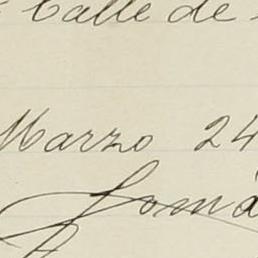 Calle de
Marzo 24
Tomá